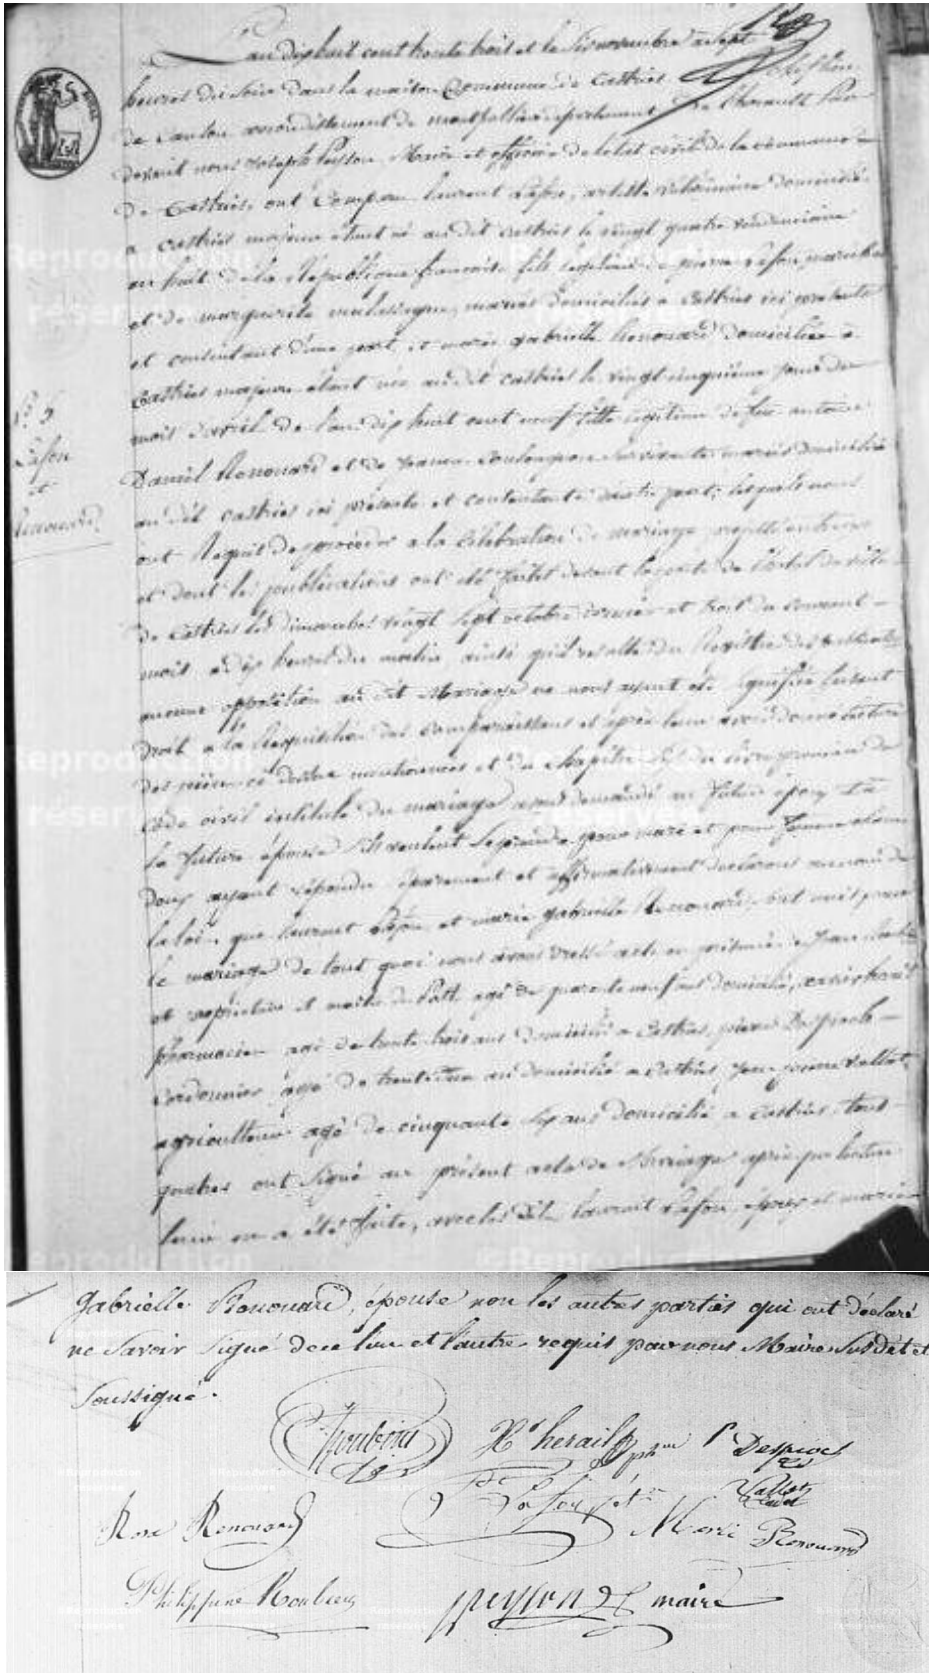 L'an dix huit cent trente trois et le six novembre à sept
heures du soir dans la maison Commune de Castries
de Canton arrondissement de montpellier département De l'hérault Par
devant nous Joseph Peysson Maire et officier de l'état civil de la commune
de Castries ont Comparu laurent Lafon, artiste vétérinaire domicilié
a castries majeur étant né au dit castries le vingt quatre vendémiaire
an huit de la République française fils légitime de pierre Lafon marechal
et de marguerite mariés domiciliés a Castries ici présents
et consentant d'une part, et marie gabrielle Renouard domiciliée a
Castries majeure étant née au dit castries le vingt cinquième jour du
mois d'avril de l'an dix huit cent neuf fille légitime de feu antoine
N° 5
Lafon
et
Renouard
Daniel Renouard et de Coulongeon survivante mariés domiciliés
au dit castries ici présente et contentante d'autre part; lesquels nous
ont Requit de procéder a la célébration de mariage projetté entre eux
et dont les publications ont été faites devant la porte de l'hotel de ville
de Castries les dimanches vingt sept octobre dernier et trois du courant
mois a dix heures du matin ainsi qu'il resulte du Registre des
aucune opposition au dit Mariage ne nous ayant été signifiée faisant
droit a la Requisition des comparaissans et après leur avoir donné lecture
des pièces ci dessus mentionnées et du chapitre six du
code civil intitulé du mariage avons demandé au futur époux et a
la future épouse s'ils veulent se prendre pour mari et pour femme chacun
deux ayant répondu séparement et affirmativement declarons au nom de
la loi, que laurent Lafon et marie gabrielle Renouard sont unis par
le mariage de tout quoi nous avons dressé acte en présence de Jean
et propriétaire et maitre de Poste agé de quarante neuf ans domicilié,
pharmacien agé de trente trois ans domicilié a Castries, pierre Despioch
cordonnier agé de trente an domicilié a Castries, Jean pierre Vallat,
agriculteur agé de cinquante six ans domicilié a Castries tous
quatres ont signé au présent acte de Mariage après que lecture
leur en a été faite, avec les dits laurent Lafon, époux et marie
gabrielle Renouard, épouse non les autres parties qui ont déclaré
ne savoir signé de ce lun et l'autre requis par nous Maire susdit et
Soussigné.
hérail phen P Despioch
Lafon Vallat
Rose Renouard Marie Renouard
Philippine Roubieu peysson maire